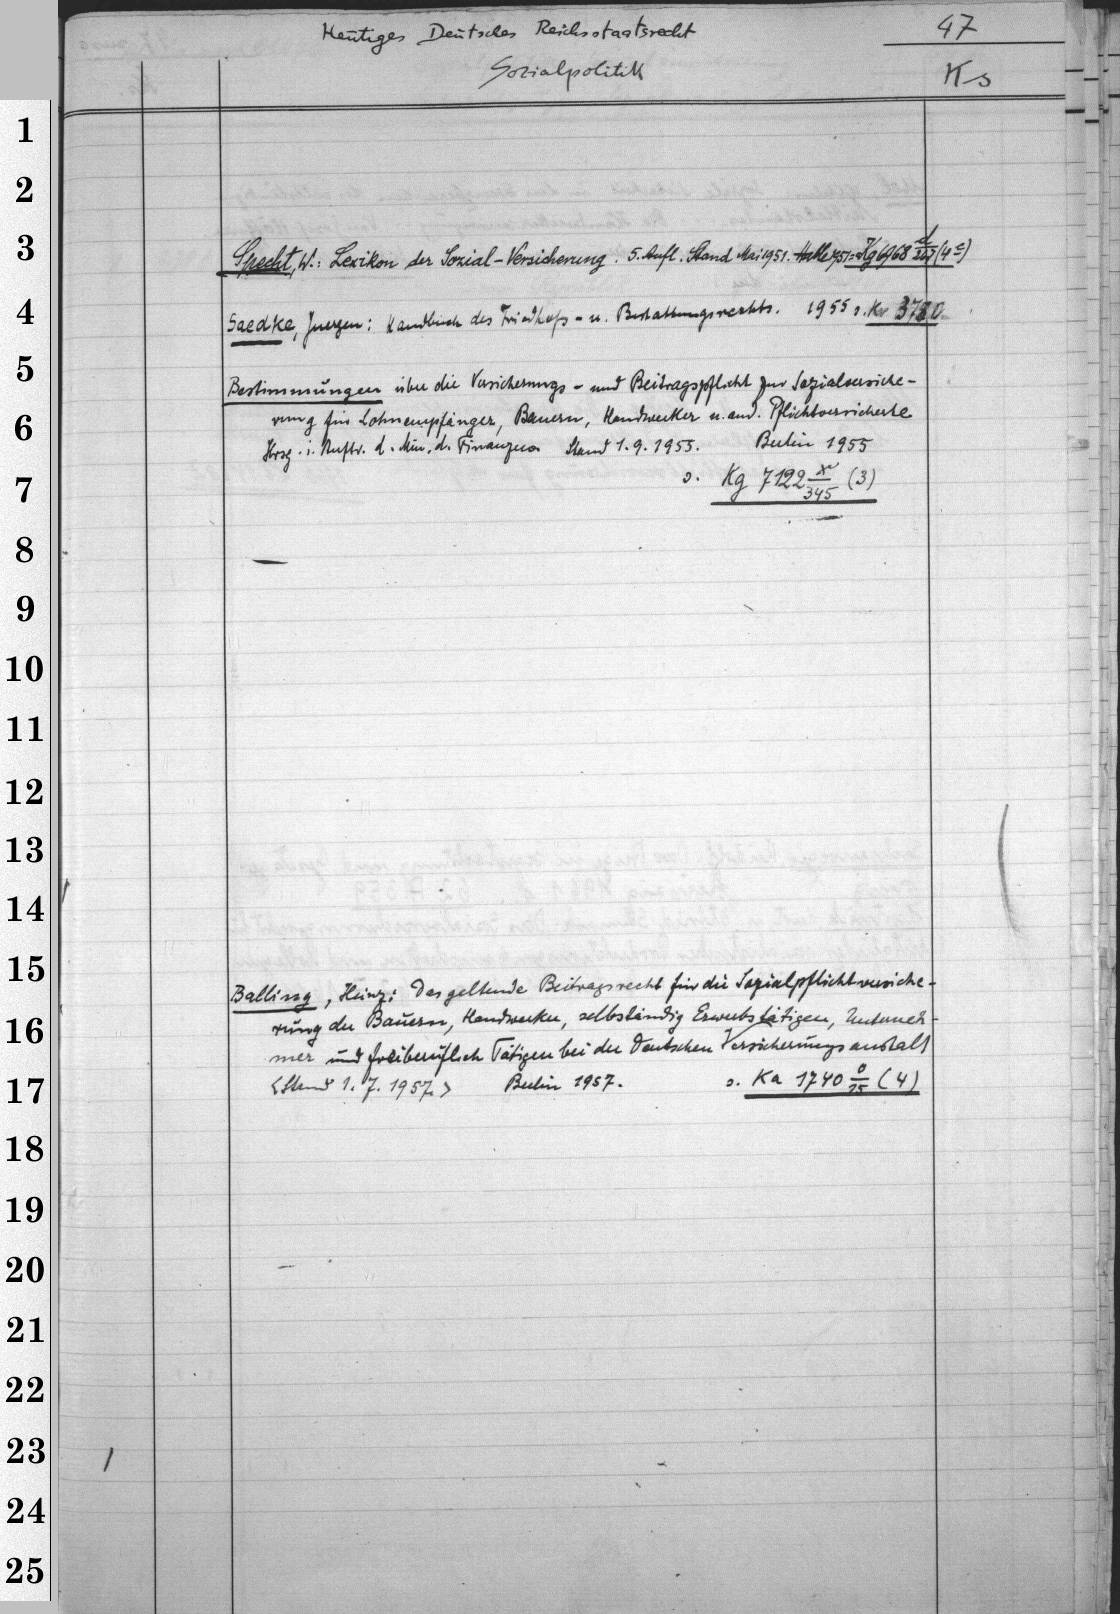 Heutiges Deutsches Reichsstaatsrecht
47
Sozialpolitik
Ks
1
2
3
Specht, W.: Lexikon der Sozial-Versicherung. 5. Aufl. Stand Mai 1951. Halle 1951 = Kg 6968 d/327 (4 c)
4
Gaedke, Juergen: Handbuch des Friedhofs- u. Bestattungsrechts. 1955 s. Kr 3780
5
Bestimmungen über die Versicherungs- und Beitragspflicht zur Sozialversiche-
6
rung für Lohnempfänger, Bauern, Handwerker u. and. Pflichtversicherte
Hrsg. i. Auftr. d. Min. d. Finanzen Stand 1.9.1955. Berlin 1955
7
s. Kg 7122 x/345 (3)
8
9
10
11
12
13
14
15
Balling, Heinz: Das geltende Beitragsrecht für die Sozialpflichtversiche-
16
rung der Bauern, Handwerker, selbständig Erwerbstätigen, Unterneh-
mer und freiberuflich Tätigen bei der Deutschen Versicherungsanstalt
17
<Stand 1.7.1957.> Berlin 1957. s. Ka 1740 o/15 (4)
18
19
20
21
22
23
24
25